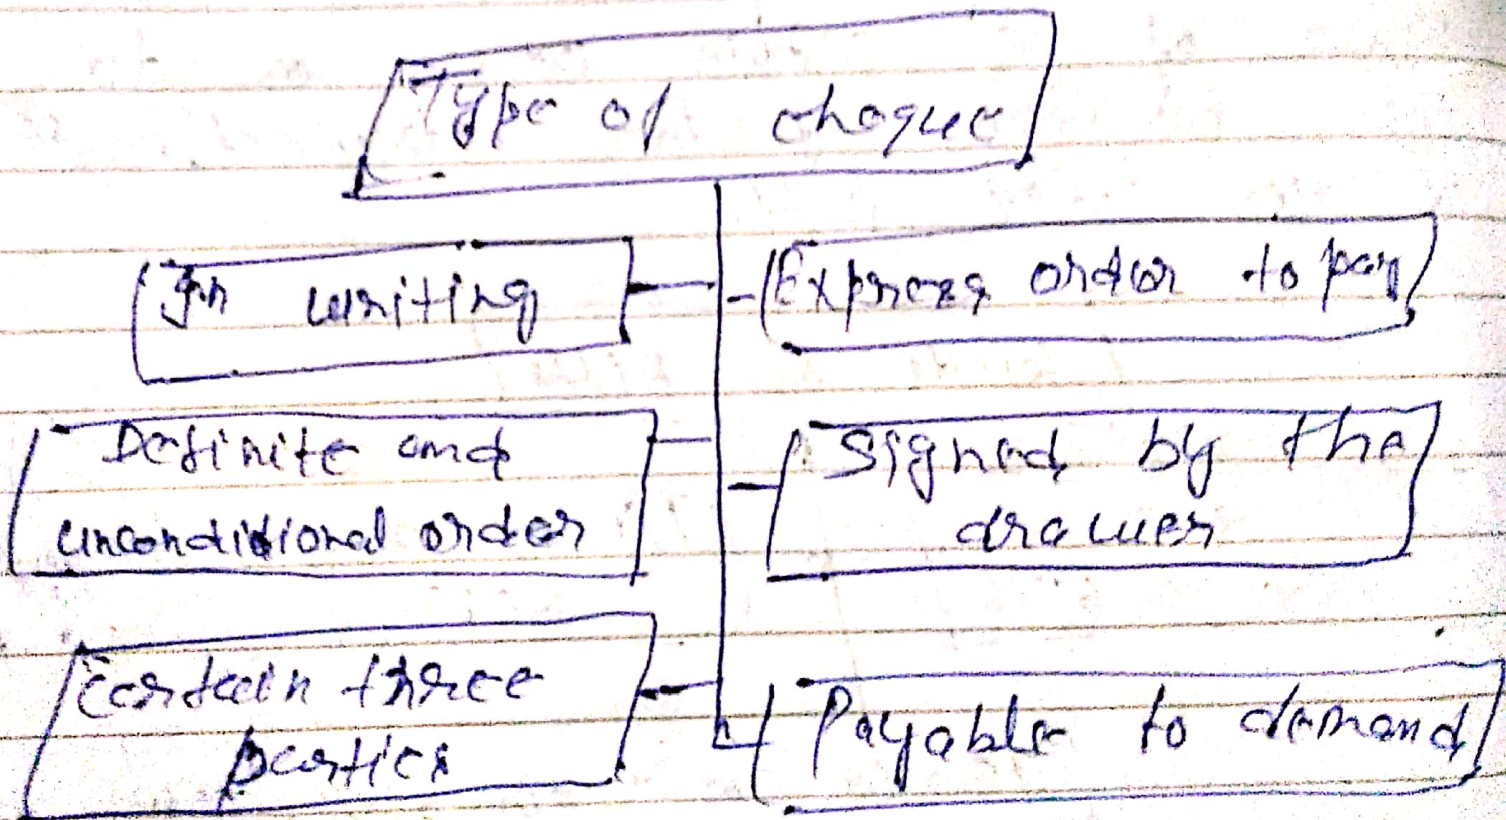 Type of cheque
In writing
Express order to pay
Definite and
unconditional order
Signed by the
drawer
Certain three
parties
Payable to demand